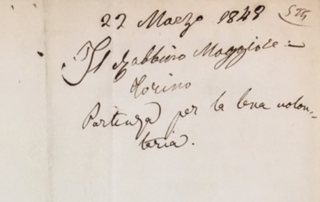 22 Marzo 1848
Il Rabbino Maggiore =
Torino
Partenza per la leva volon-
taria.